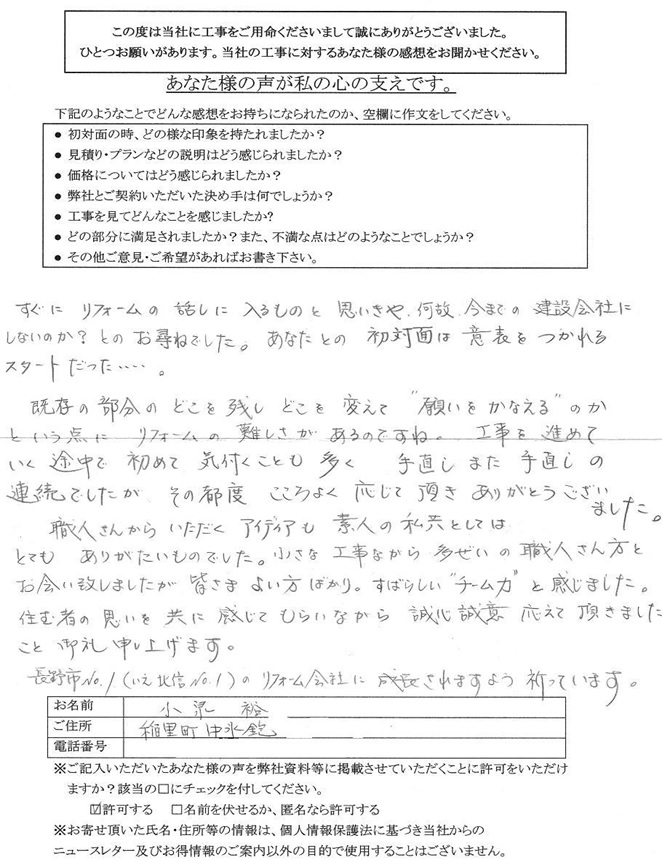 この度は当社に工事をご用命くださいまして誠にありがとうございました。
ひとつお願いがあります。当社の工事に対するあなた様の感想をお聞かせください。
あなた様の声が私の心の支えです。
下記のようなことでどんな感想をお持ちになられたのか、空欄に作文をしてください。
● 初対面の時、どの様な印象を持たれましたか？
● 見積り・プランなどの説明はどう感じられましたか？
● 価格についてはどう感じられましたか？
● 弊社とご契約いただいた決め手は何でしょうか？
● 工事を見てどんなことを感じましたか?
● どの部分に満足されましたか？また、不満な点はどのようなことでしょうか？
● その他ご意見・ご希望があればお書き下さい。
すぐに リフォームの 話しに 入るものと 思いきや、何故、今までの 建設会社に
しないのか？ との お尋ねでした。 あなたとの 初対面は 意表を つかれる
スタート だった‥‥。
既存の 部分の どこを 残し どこを 変えて "願いを かなえる" のか
という 点に リフォームの 難しさが あるのですね。 工事を 進めて
いく 途中で 初めて 気付くことも 多く 手直し また 手直しの
連続でしたが その都度 こころよく 応じて 頂き ありがとうござい
ました。
職人さんから いただく アイディアも 素人の 私共としては
とても ありがたいものでした。小さな 工事ながら 多ぜいの 職人さん方と
お会い致しましたが 皆さま よい方 ばかり。すばらしい "チーム力" と 感じました。
住む者の 思いを 共に 感じて もらいながら 誠心誠意 応えて 頂きました
こと 御礼 申し上げます。
長野市No.1（いえ 北信 No.1）の リフォーム会社に 成長されますよう 祈っています。
お名前 小泉 裕
ご住所 稲里町中氷鉋
電話番号
※ご記入いただいたあなた様の声を弊社資料等に掲載させていただくことに許可をいただけ
ますか？該当の□にチェックを付してください。
☑許可する □名前を伏せるか、匿名なら許可する
※お寄せ頂いた氏名・住所等の情報は、個人情報保護法に基づき当社からの
ニュースレター及びお得情報のご案内以外の目的で使用することはございません。